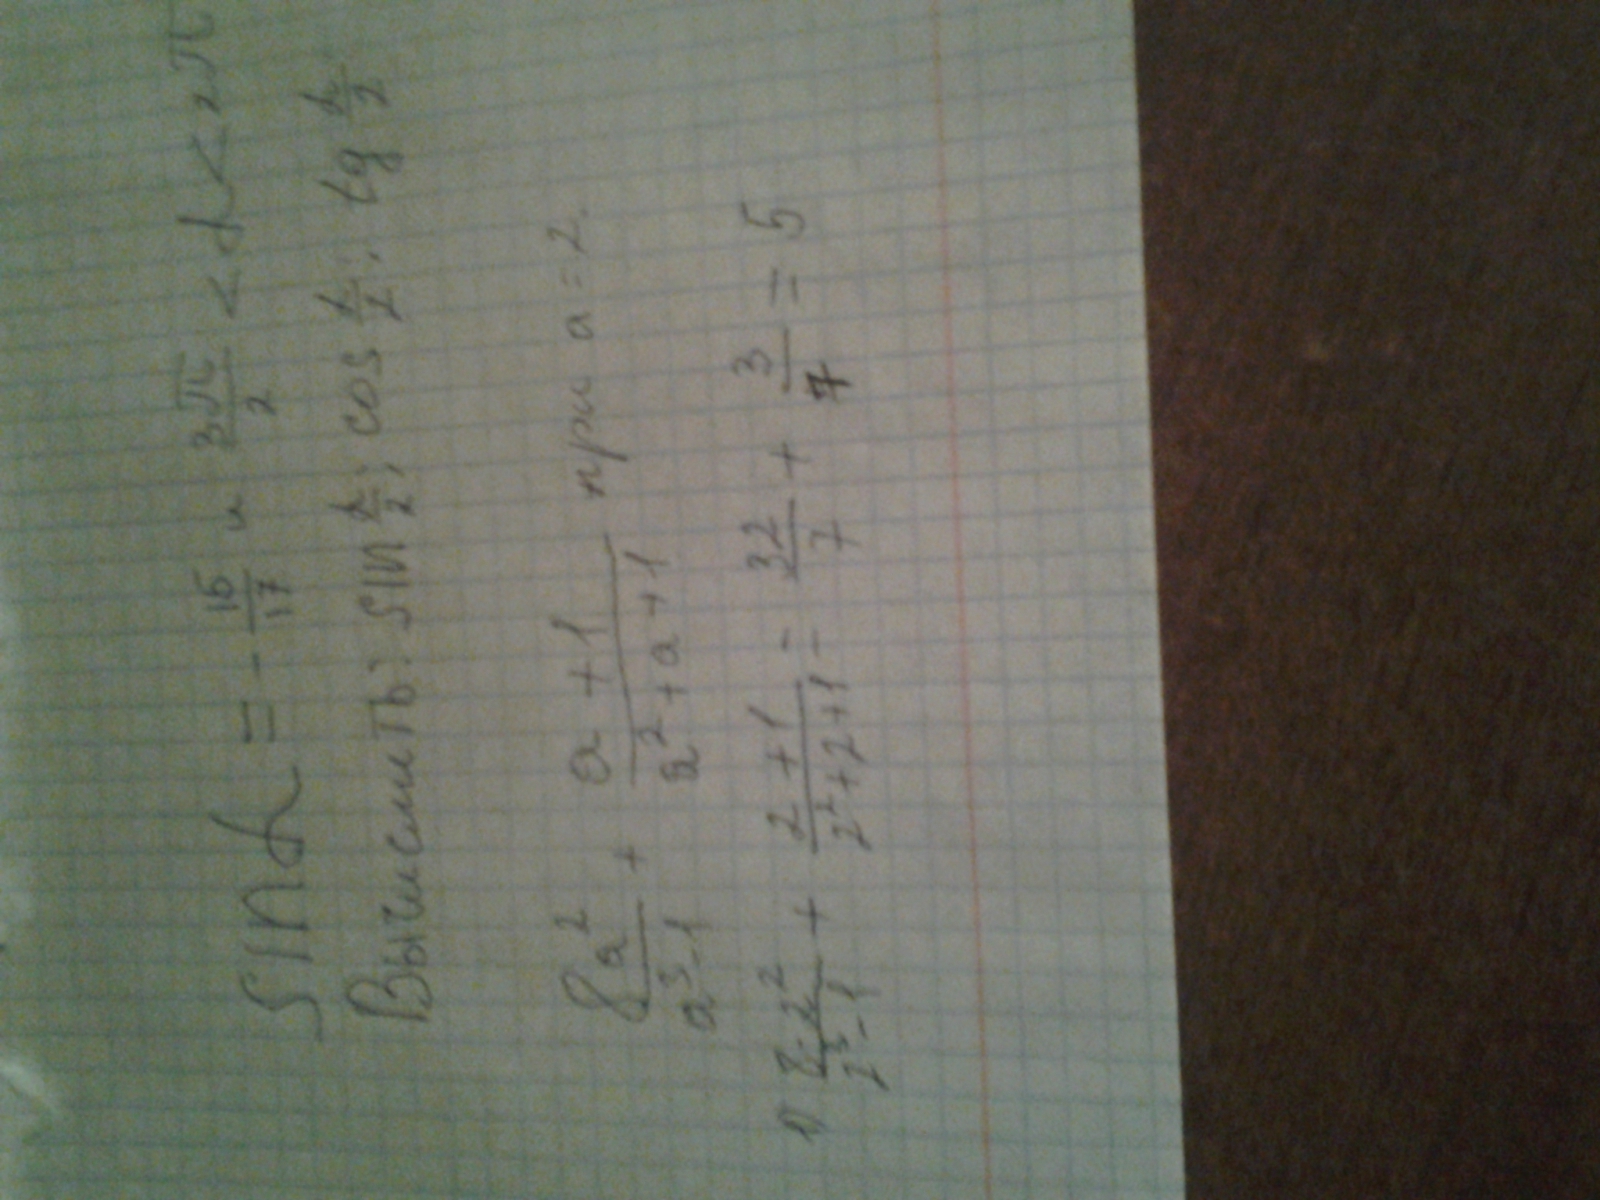 sin α = - 15/17 и 3π/2 < α < 2π
Вычислить: sin α/2; cos α/2; tg α/2
8a²/a³-1 + a+1/a²+a+1 при a=2.
1) 8·2²/2³-1 + 2+1/2²+2+1 = 32/7 + 3/7 = 5